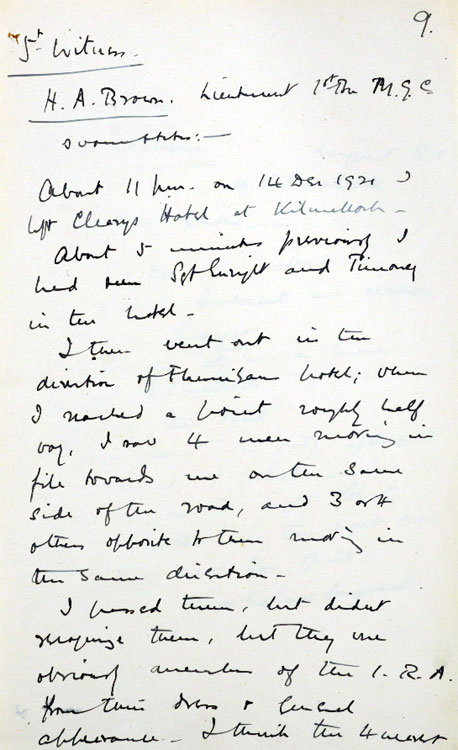 9.
5th Witness.
H. A. Brown. Lieutenant 1st Bn M.G.C
sworn states:—
About 11 p.m. on 14 Dec 1921 I
left Clearys Hotel at Kilmallock -
About 5 minutes previously I
had seen Sgt Enright and Timoney
in the hotel -
I then went out in the
direction of Flannigans hotel; when
I reached a point roughly half
way, I saw 4 men moving in
file towards me on the same
side of the road, and 3 or 4
others opposite to them moving in
the same direction -
I passed them, but didnt
recognize them, but they were
obviously members of the I.R.A.
from their dress & general
appearance - I think the 4 nearest